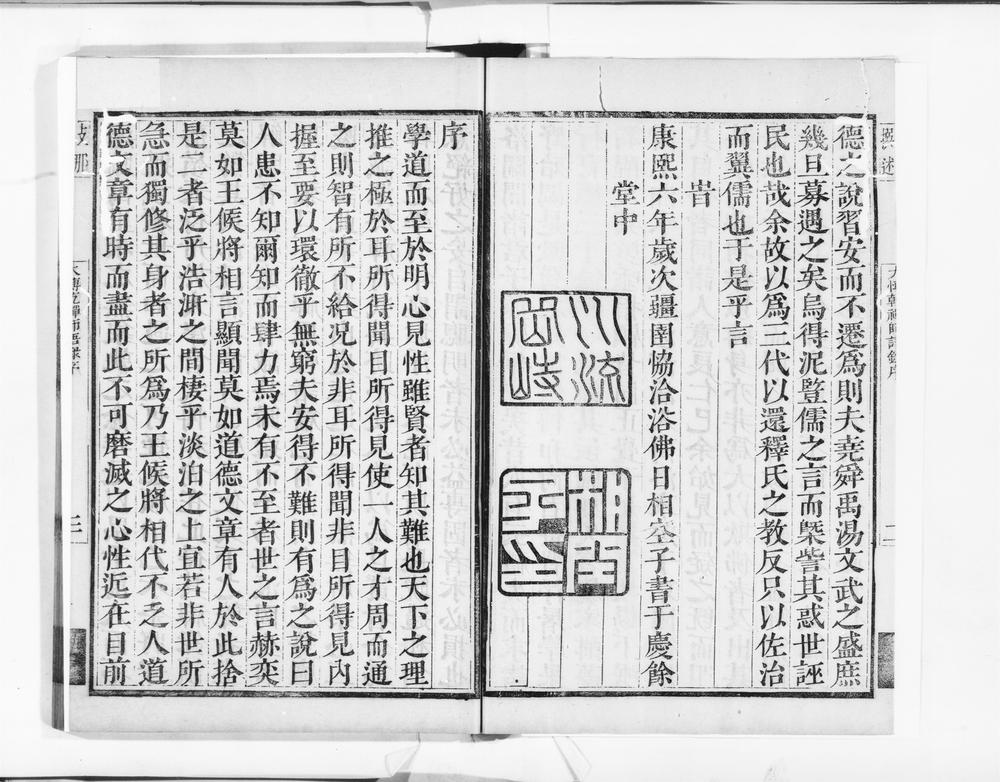 德之說習安而不遷爲則夫堯舜禹湯文武之盛庶
幾旦募遇之矣烏得泥暨儒之言而槩訾其惑世誣
民也哉余故以爲三代以還釋氏之教反只以佐治
而翼儒也于是乎言
旹
康熙六年歲次疆圉協洽浴佛日相空子書于慶餘
堂中
序
學道而至於明心見性雖賢者知其難也天下之理
推之極於耳所得聞目所得見使 人之才周而通
之則智有所不給况於非耳所得聞非目所得見内
握至要以環徹乎無窮夫安得不難則有爲之說曰
人患不知爾知而肆力焉未有不至者世之言赫奕
莫如王候將相言顯聞莫如道德文章有人於此捨
是二者泛乎浩淅之間棲乎淡泊之土宜若非世所
急而獨修其身者之所爲乃王候將相代不乏人道
德文章有時而盡而此不可磨滅之心性近在目前